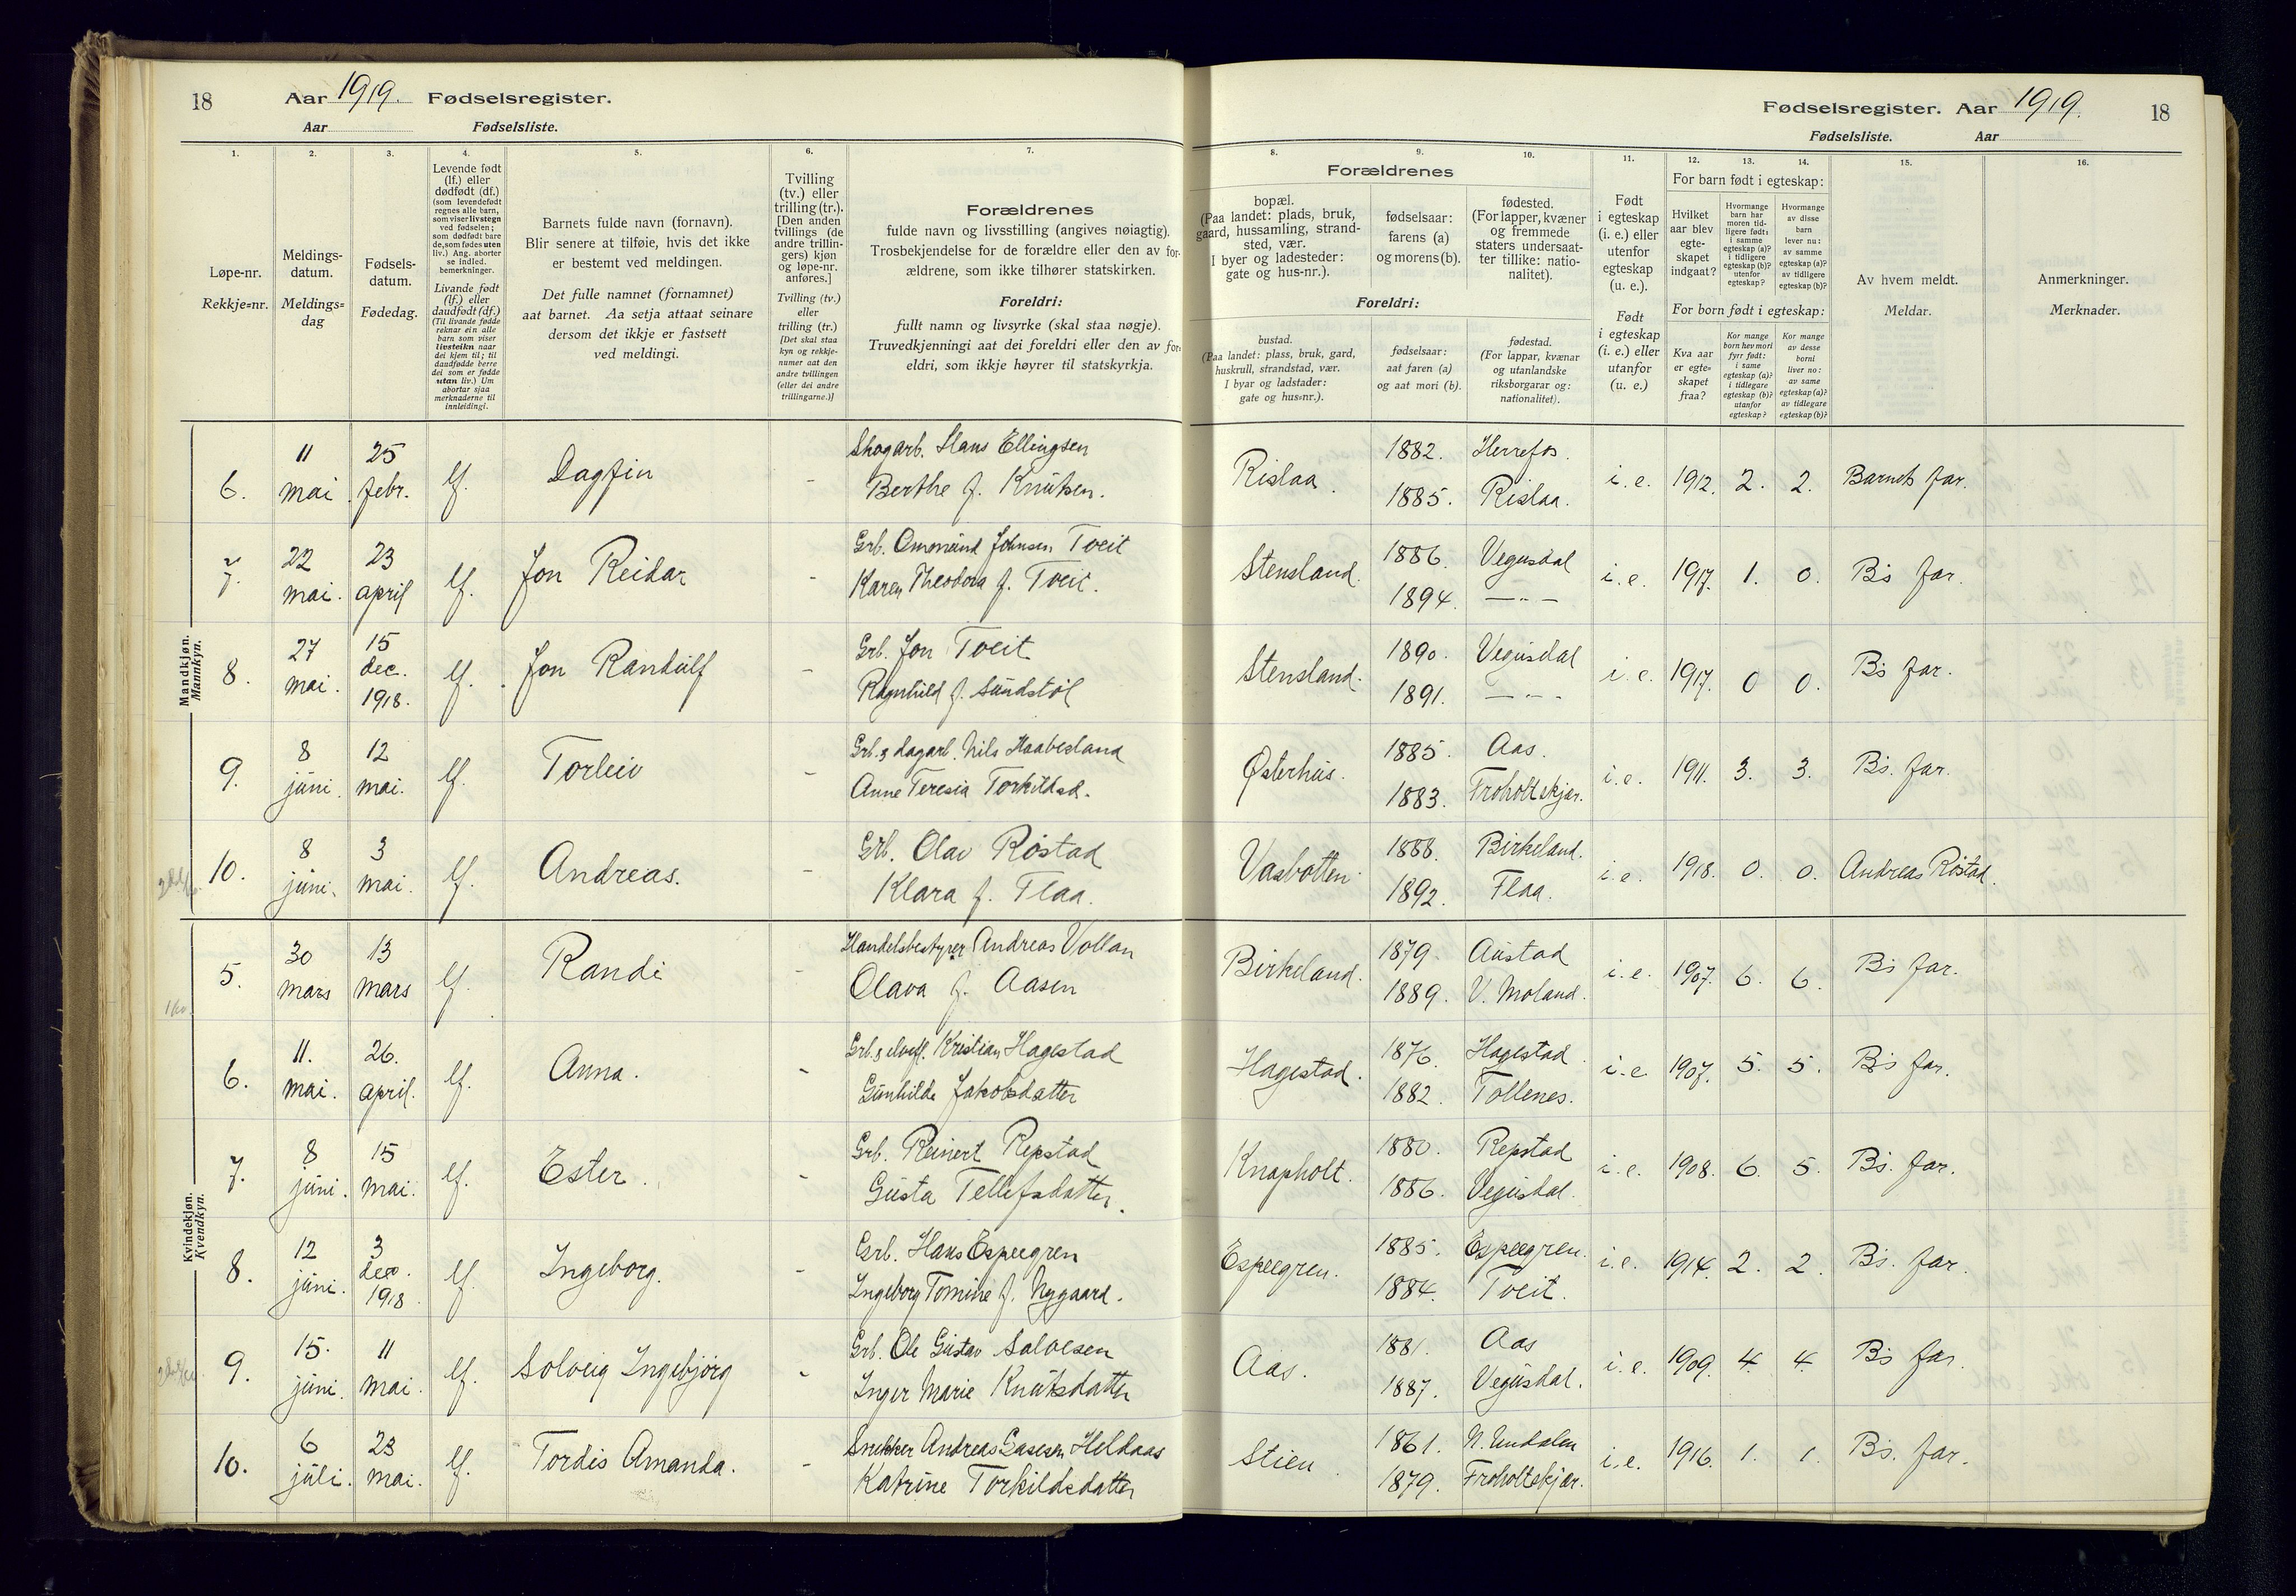 18
Aar 1919. Fødselsregister.
Aar
Fødselsliste.
Fødselsregister. Aar 1919.
18
Fødselsliste. Aar
1.
Løpe-nr.
Rekkje=nr.
2.
Meldings-
datum.
Meldings=
dag
3.
Fødsels-
datum.
Fødedag.
4.
Levende født
(lf.) eller
dødfødt (df.)
(som levendefødt
regnes alle barn,
som viser livstegn
ved fødselen;
som dødfødt bare
de, som fødes uten
liv.) Ang. aborter
se indled.
bemerkninger.
Livande født
(lf.) eller
daudfødt (df.)
(Til livande fødde
reknar ein alle
barn som viser
livsteikn naar
dei kjem til; til
daudfødde berre
dei som er fødde
utan liv.) Um
abortar sjaa
merknaderne til
innleidingi.
5.
Barnets fulde navn (fornavn).
Blir senere at tilføie, hvis det ikke
er bestemt ved meldingen.
Det fulle namnet (fornamnet)
aat barnet. Aa setja attaat seinare
dersom det ikkje er fastsett
ved meldingi.
6.
Tvilling
(tv.) eller
trilling (tr.).
[Den anden
tvillings (de
andre trillin-
gers) kjøn
og løpe-nr.
anføres.]
Tvilling (tv.)
eller
trilling (tr.)
[Det skal staa
kyn og rekkje-
numer aat den
andre tvillingen
(eller dei andre
trillingarne.)]
7.
Forældrenes
fulde navn og livsstilling (angives nøiagtig).
Trosbekjendelse for de forældre eller den av for-
ældrene, som ikke tilhører statskirken.
Foreldri:
fullt namn og livsyrke (skal staa nøgje).
Truvedkjenningi aat dei foreldri eller den av for-
eldri, som ikkje høyrer til statskyrkja.
Forældrenes
8.
bopæl.
(Paa landet: plads, bruk,
gaard, hussamling, strand-
sted, vær.
I byer og ladesteder:
gate og hus-nr.).
9.
fødselsaar:
farens (a)
og morens (b).
10.
fødested.
(For lapper, kvæner
og fremmede
staters undersaat-
ter tillike: natio-
nalitet).
Foreldri:
bustad.
(Paa landet: plass, bruk, gard,
huskrull, strandstad, vær.
I byar og ladstader:
gate og hus=nr.).
fødselsaar:
aat faren (a)
og aat mori (b).
fødestad.
(For lappar, kvænar
og utanlandske
riksborgarar og:
nationalitet).
11.
Født
i egteskap
(i. e.) eller
utenfor
egteskap
(u. e.).
Født
i egteskap
(i. e.) eller
utanfor
(u. e.)
12. 13. 14.
For barn født i egteskap:
Hvilket
aar blev
egte-
skapet
indgaat?
Hvormange
barn har
moren tid-
ligere født:
i samme
egteskap (a)?
i tidligere
egteskap (b)?
utenfor
egteskap?
Hvormange
av disse
barn
lever nu:
av samme
egteskap (a)?
av tidligere
egteskap (b)?
For born født i egteskap:
Kva aar
er egte=
skapet
fraa?
Kor mange
born hev mori
fyrr født:
i same
egteskap (a)?
i tidlegare
egteskap (b)?
utanfor
egteskap?
Kor mange
av desse
borni
liver no:
av same
egteskap (a)?
av tidlegare
egteskap (b)?
15.
Av hvem meldt.
Meldar.
16.
Anmerkninger.
Merknader.
Mandkjøn.
Mannkyn.
6. 11 mai 25 febr. lf. Dagfin - Skogarb. Hans Ellingsen
Berthe f. Knutsen. Rislaa. 1882. Herrefos.
1885. Rislaa. i. e. 1912. 2. 2. Barnets far.
7. 22 mai. 23 april lf. Jon Reidar - Grb. Ommund Johnsen Tveit
Karen Theodora f. Tveit. Stensland. 1886. Vegusdal
1894. —"— i. e. 1917. 1. 0. B's far.
8. 27 mai. 15 dec. 1918. lf. Jon Randulf - Grb. Jon Tveit
Ragnhild f. Sundstøl Stensland. 1890. Vegusdal
1891. —"— i. e. 1917. 0 0. B's far.
9. 8 juni. 12 mai. lf. Torleiv - Grb. & dagarb. Nils Haabesland
Anne Teresia Torkildsd. Østerhus. 1885. Aas.
1883. Froholtskjær. i. e. 1911. 3. 3. B's. far.
10. 8 juni. 3 mai. lf. Andreas. - Grb. Olav Røstad
Klara f. Flaa. Vasbotten 1888. Birkeland.
1892. Flaa. i. e. 1918. 0. 0. Andreas Røstad.
Kvindekjøn.
Kvendkyn.
5. 30 mars 13 mars lf. Randi - Handelsbestyrer Andreas Vollan
Olava f. Aasen Birkeland. 1879. Austad
1889. V. Moland. i. e. 1907. 6. 6. B's far.
6. 11. mai. 26. april. lf. Anna. - Grb. & Kristian Hagestad
Gunhilde Jakobsdatter Hagestad. 1876. Hagestad.
1882. Tollenes. i. e. 1907. 5. 5. B's far.
7. 8 juni. 15 mai. lf. Ester. - Grb. Reinert Repstad
Gusta Tellefsdatter. Knapholt. 1880. Repstad
1886. Vegusdal. i. e. 1908. 6. 5. B's. far.
8. 12 juni. 3 dec. 1918. lf. Ingeborg. - Grb. Hans Espegren
Ingeborg Tomine f. Nygaard. Espegren. 1885. Espegren.
1884. Tveit. i. e. 1914. 2. 2. B's. far.
9. 15. juni. 11 mai. lf. Solveig Ingebjørg - Grb. Ole Gustav Salvesen
Inger Marie Knutsdatter Aas. 1881. Aas
1887. Vegusdal. i. e. 1909. 4. 4. B's far.
10. 6 juli. 23 mai. lf. Tordis Amanda. - Snekker Andreas Heldaas
Katrine Torkildsdatter Stien. 1861. N. Undalen
1879. Froholtskjær. i. e. 1916. 1. 1. B's. far.